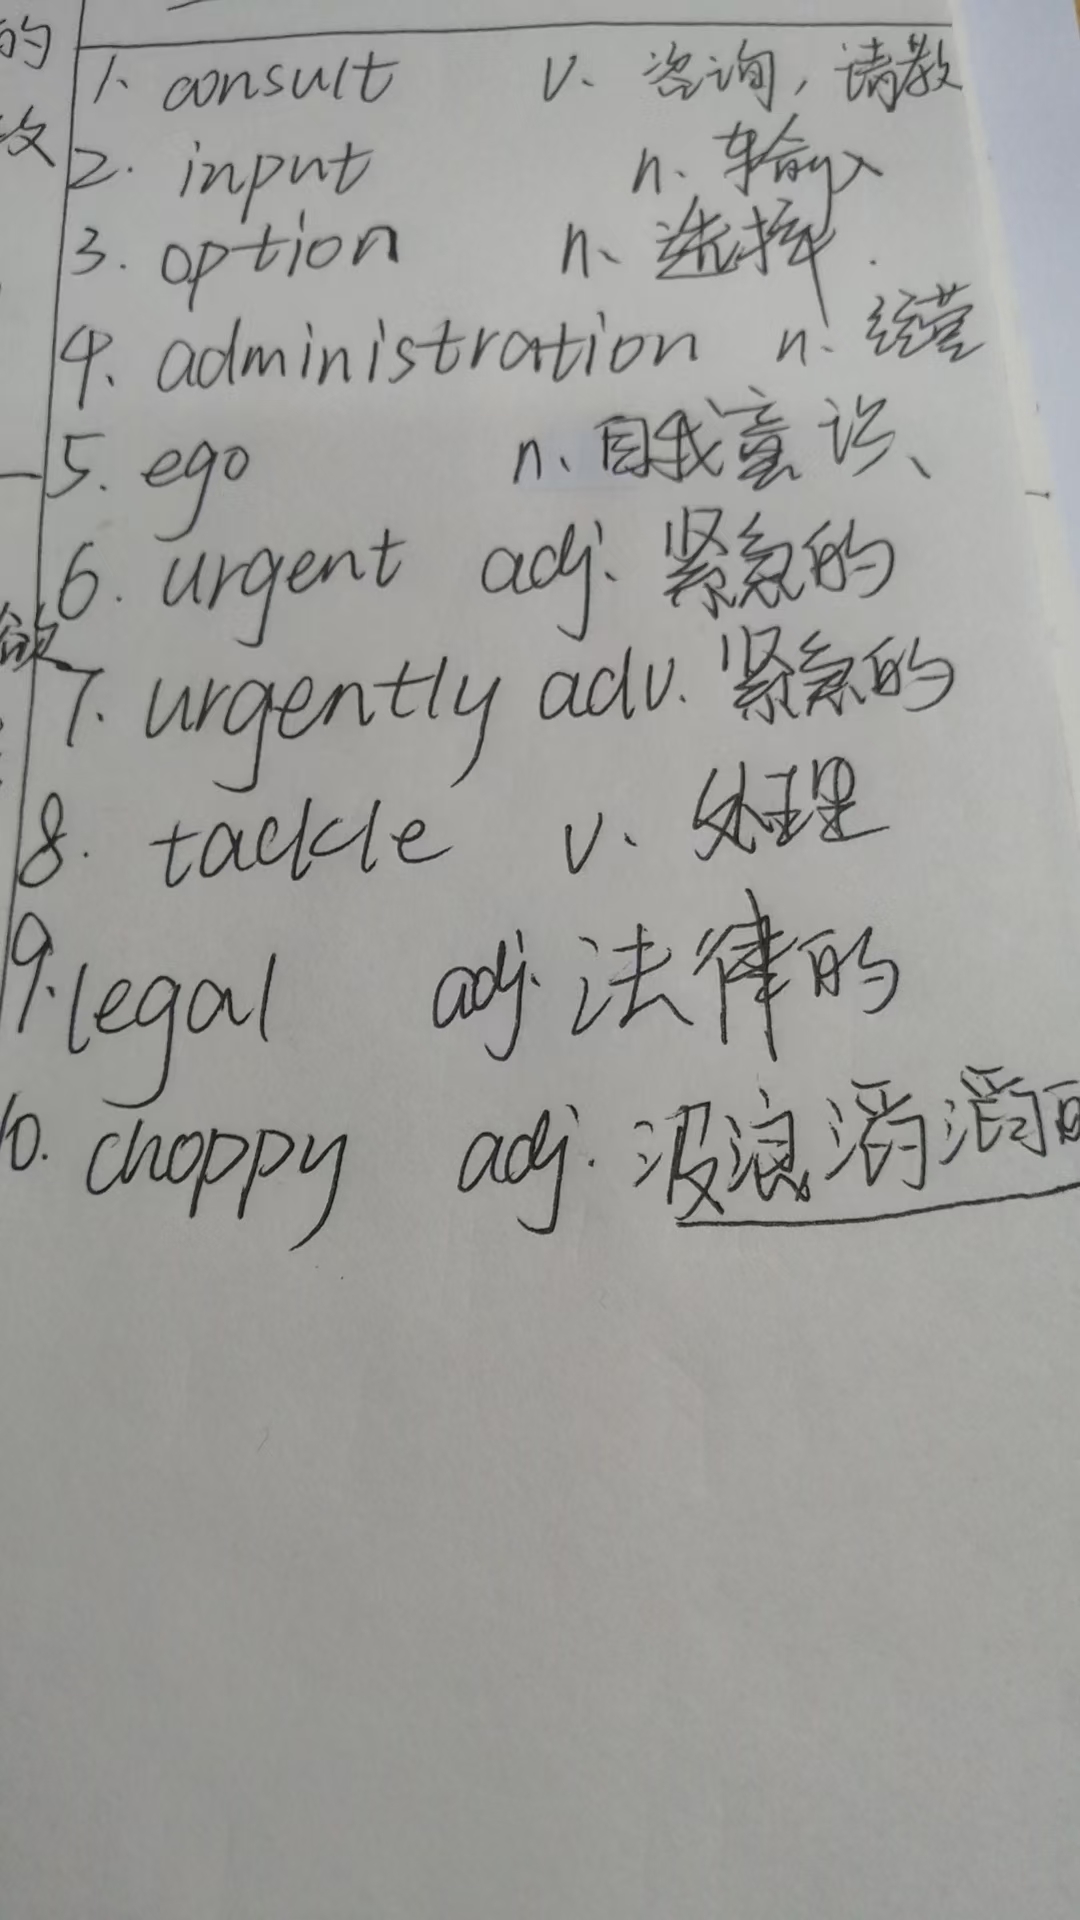 的
1. consult v. 咨询, 请教
2. input n. 输入
3. option n. 选择.
4. administration n. 经营
5. ego n. 自我意识、
6. urgent adj. 紧急的
7. urgently adv. 紧急的
8. tackle v. 处理
9. legal adj. 法律的
10. choppy adj. 波浪滔滔的